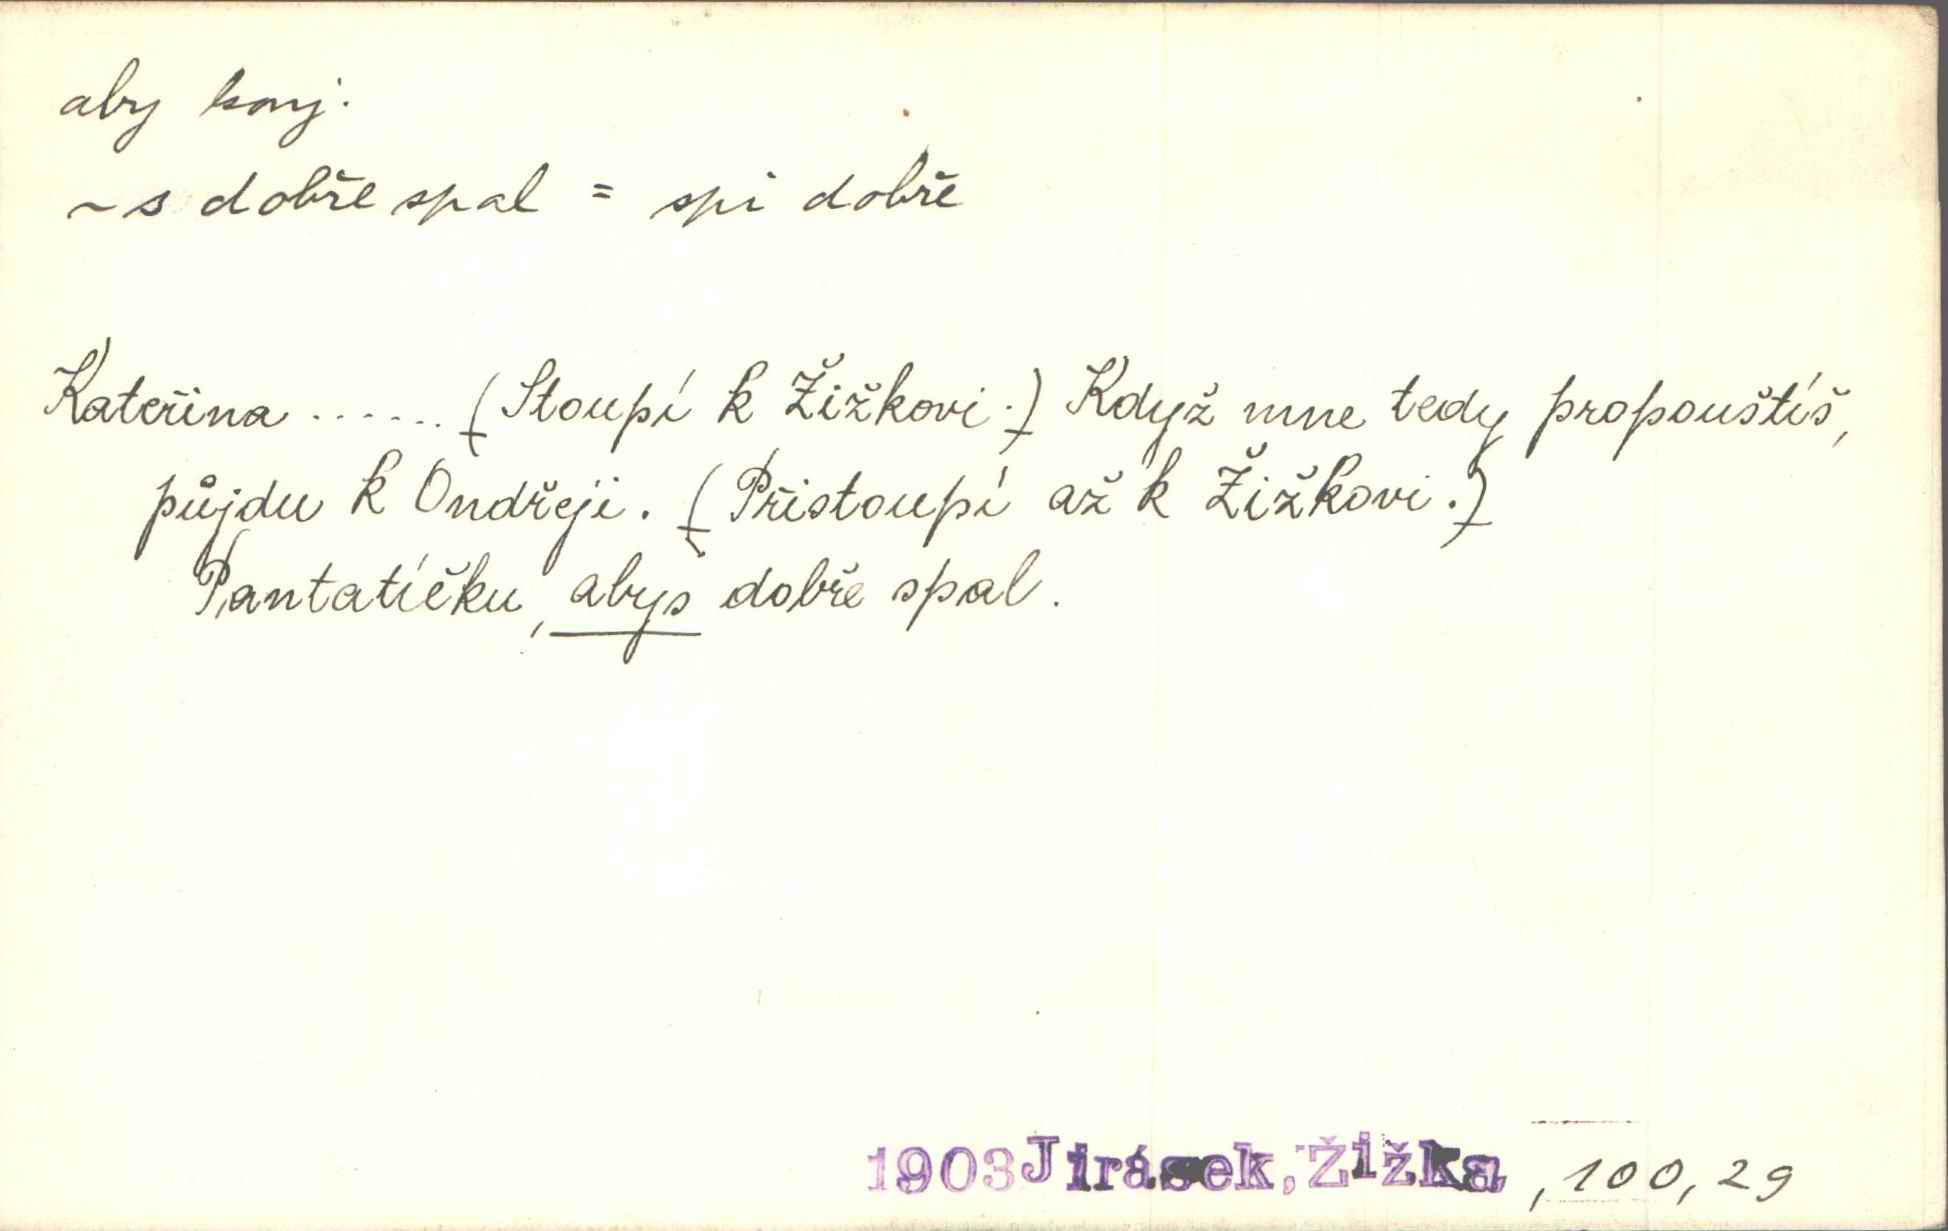 aby konj.
~s dobře spal = spi dobře
Kateřina ...... (Stoupí k Žižkovi.) Když mne tedy propouštíš,
půjdu k Ondřeji. (Přistoupí až k Žižkovi.)
Pantatíčku, abys dobře spal.
1903 Jirásek, Žižka, 100, 29